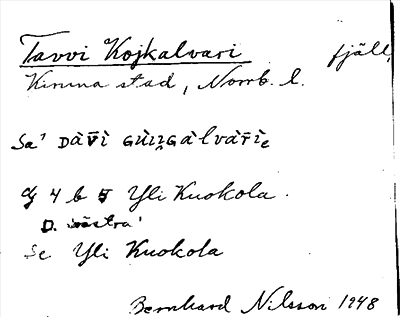 Tavvi Kojkalvari fjäll,
Kiruna stad, Norrb. l.
Sa' DÀV̄Ì GÙI̮ZGÀLVÀR̄Ìe
Yli Kuokola.
D. västra'
Se Yli Kuokola
Bernhard Nilsson 1948